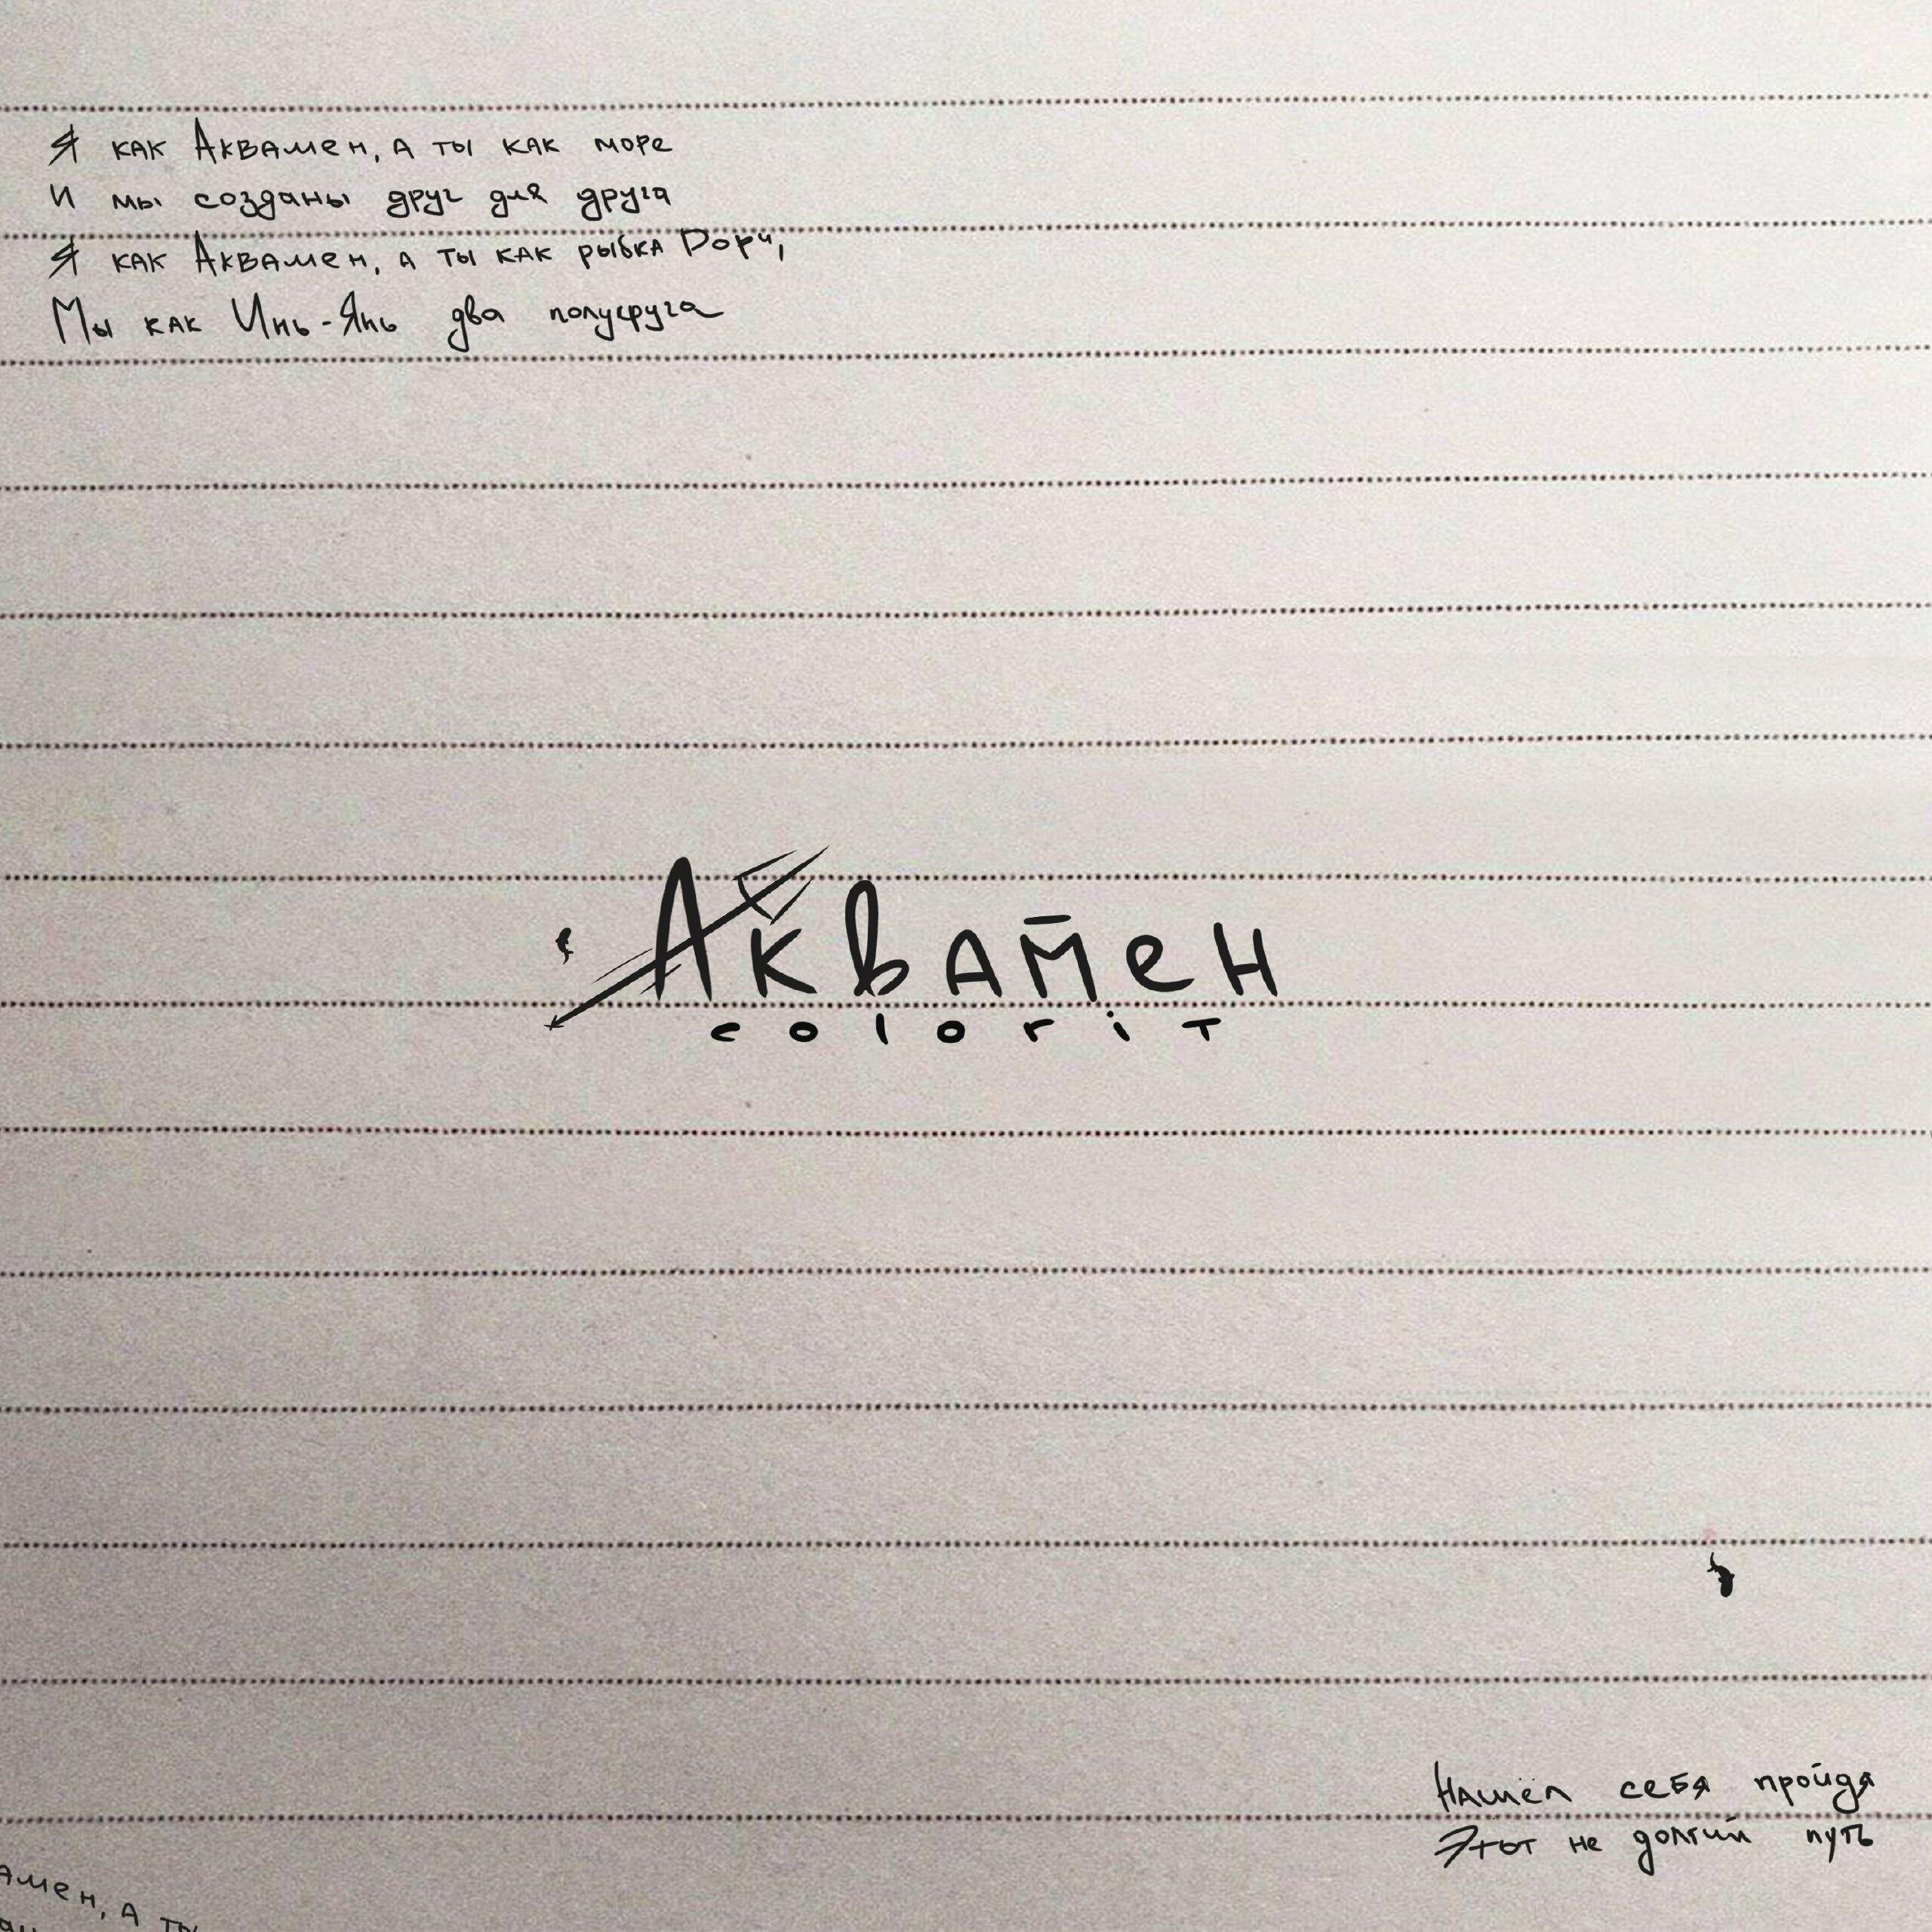 Я как Аквамен, а ты как море
И мы созданы друг для друга
Я как Аквамен, а ты как рыбка Дори,
Мы как Инь-Янь два полукруга
Аквамен
colorit
Нашёл себя пройдя
Этот не долгий путь
амен, а ты